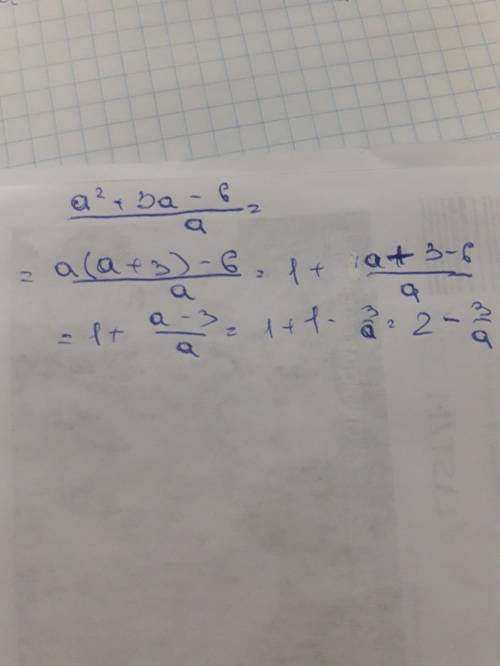 a² + 3a - 6 / a =
= a(a + 3) - 6 / a = 1 + a + 3 - 6 / a
= 1 + a - 3 / a = 1 + 1 - 3/a = 2 - 3/a